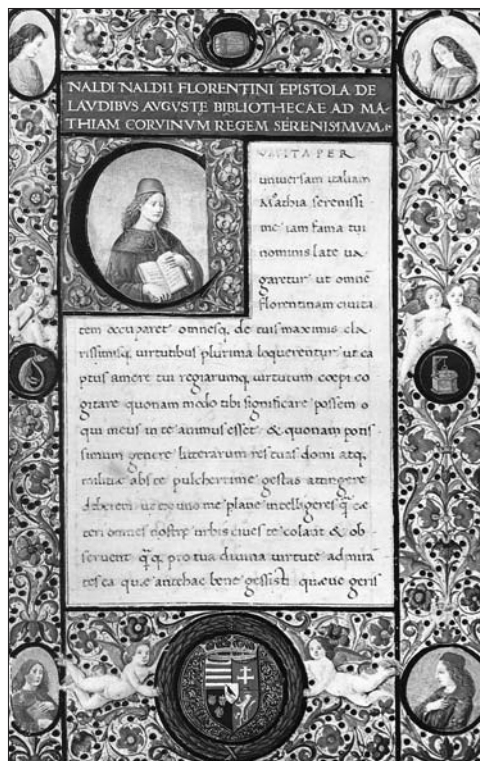 NALDI NALDII FLORENTINI EPISTOLA DE
LAVDIBVS AVGVSTE BIBLIOTHECAE AD MA
THIAM CORVINVM REGEM SERENISIMVM
C
VM ITA PER
universam italiam
Mathia serenissi
me iam fama tui
nominis late va
garetur ut omnē
florentinam civita
tem occuparet omnesq, de tuis maximis cla
rissimisq, virtutibus plurima loquerentur ut ca
ptus amore tui regiarumq, virtutum coepi co
gitare quonam modo tibi significare possem o
qui meus in te animus esset & quonam potis
simum genere litterarum res tuas domi atq,
militiae abs te pulcherrime gestas attingere
deberem ut ex uno me plane intelligeres q̄ cæ
teri omnes nostræ urbis cives te colant & ob
servent q̄q pro tua divina virtute ad mirā
tes ea quæ antehac bene gessisti quæve geris